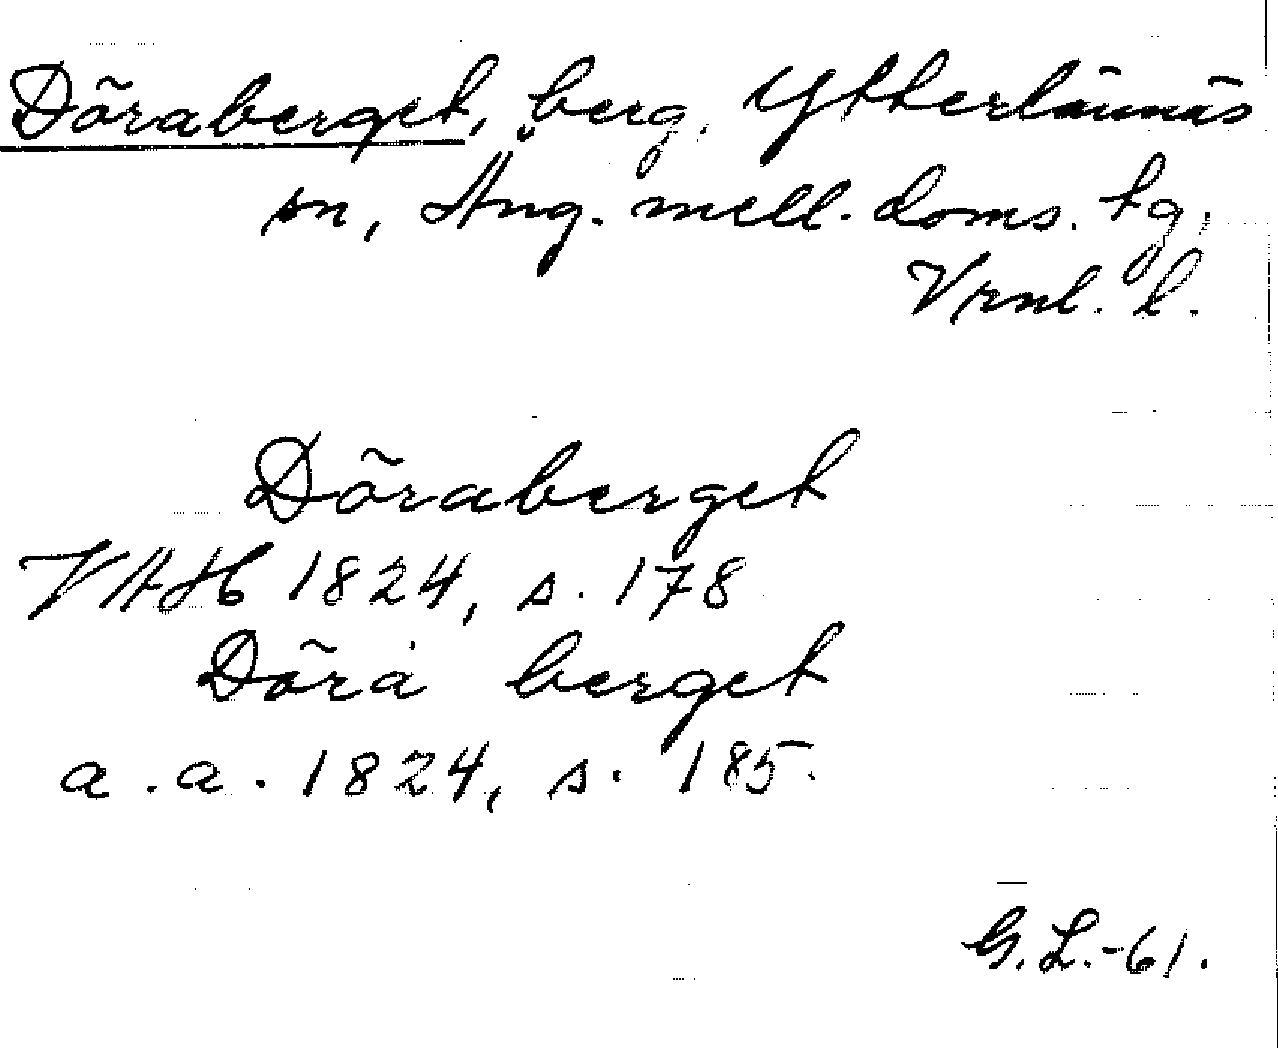 Döraberget, berg, Ytterlännäs
sn, Ång. mell. doms. tg,
Vrnl. l.
Döraberget
VAH 1824, s. 178
Döra berget
a.a. 1824, s. 185.
G.L.-61.